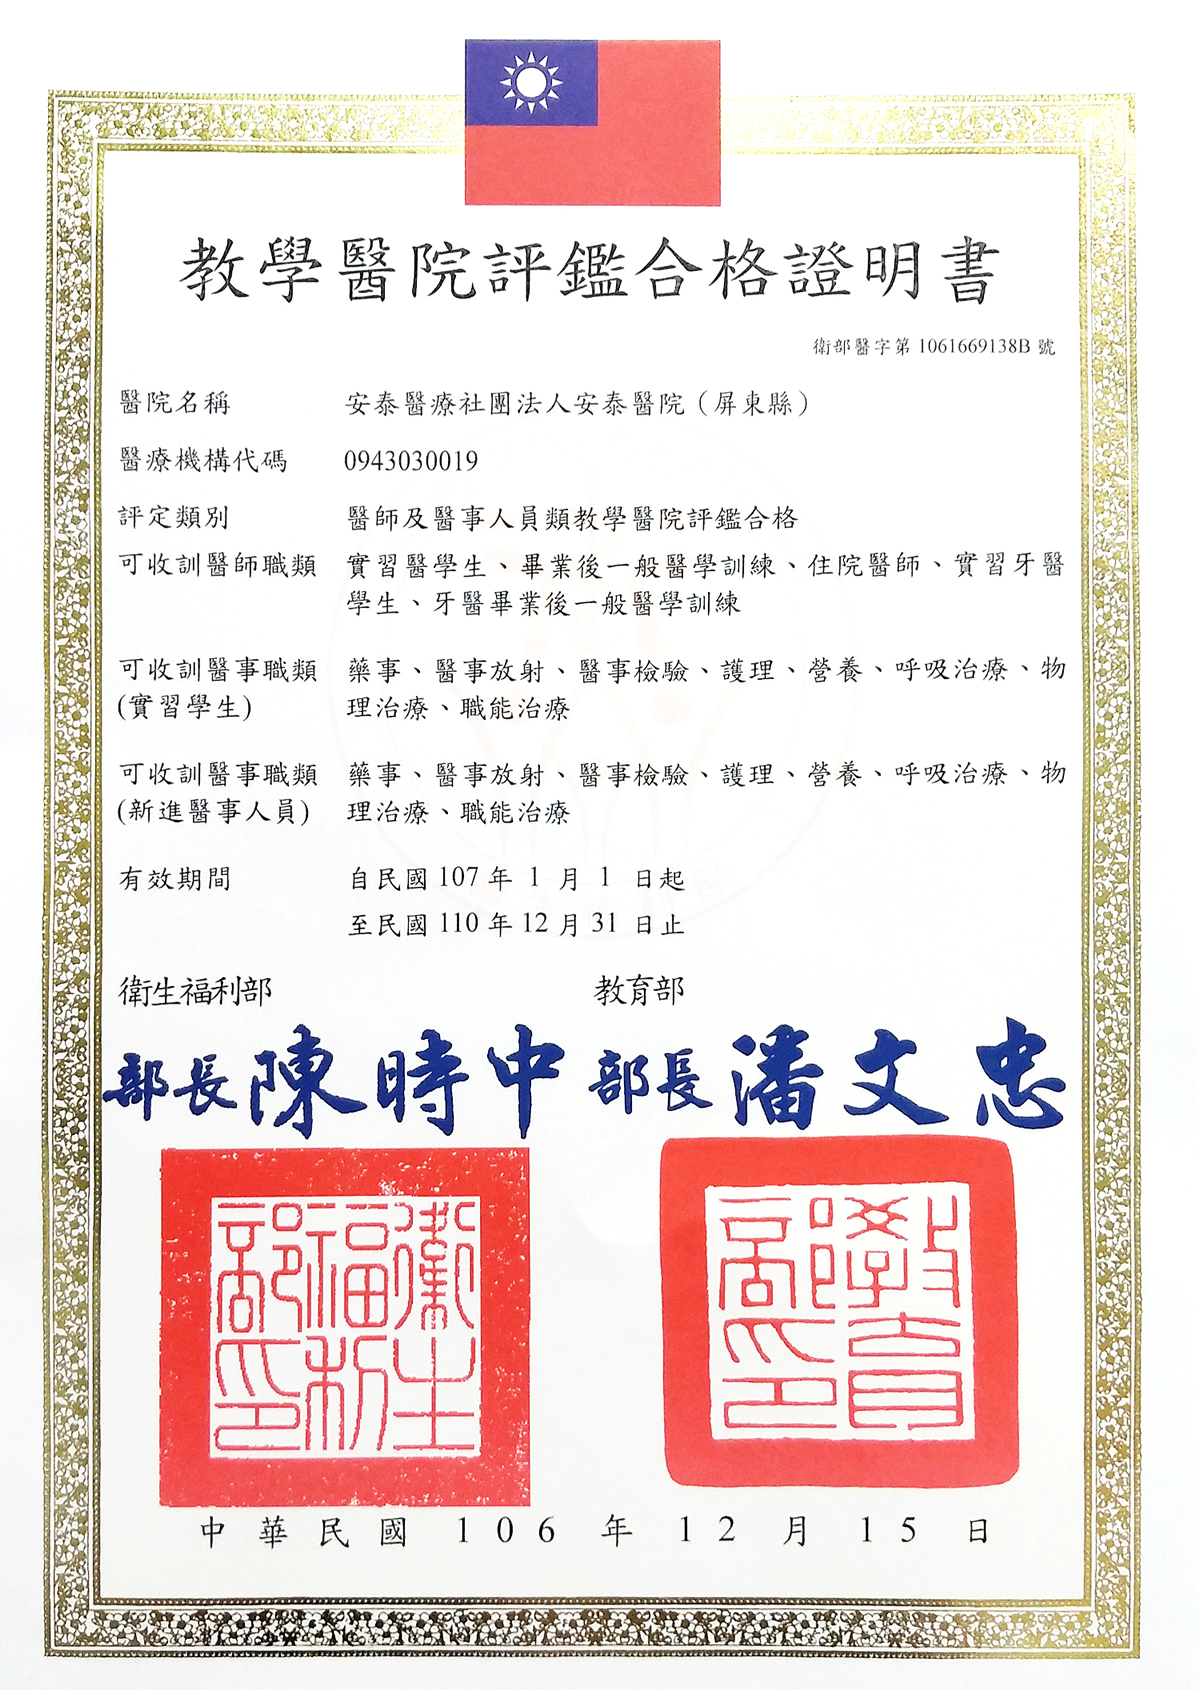 教學醫院評鑑合格證明書
衛部醫字第 1061669138B 號
醫院名稱 安泰醫療社團法人安泰醫院（屏東縣）
醫療機構代碼 0943030019
評定類別 醫師及醫事人員類教學醫院評鑑合格
可收訓醫師職類 實習醫學生、畢業後一般醫學訓練、住院醫師、實習牙醫
學生、牙醫畢業後一般醫學訓練
可收訓醫事職類 藥事、醫事放射、醫事檢驗、護理、營養、呼吸治療、物
(實習學生) 理治療、職能治療
可收訓醫事職類 藥事、醫事放射、醫事檢驗、護理、營養、呼吸治療、物
(新進醫事人員) 理治療、職能治療
有效期間 自民國 107 年 1 月 1 日起
至民國 110 年 12 月 31 日止
衛生福利部 教育部
部長 陳時中 部長 潘文忠
衛生福利部印 教育部印
中華民國 106 年 12 月 15 日